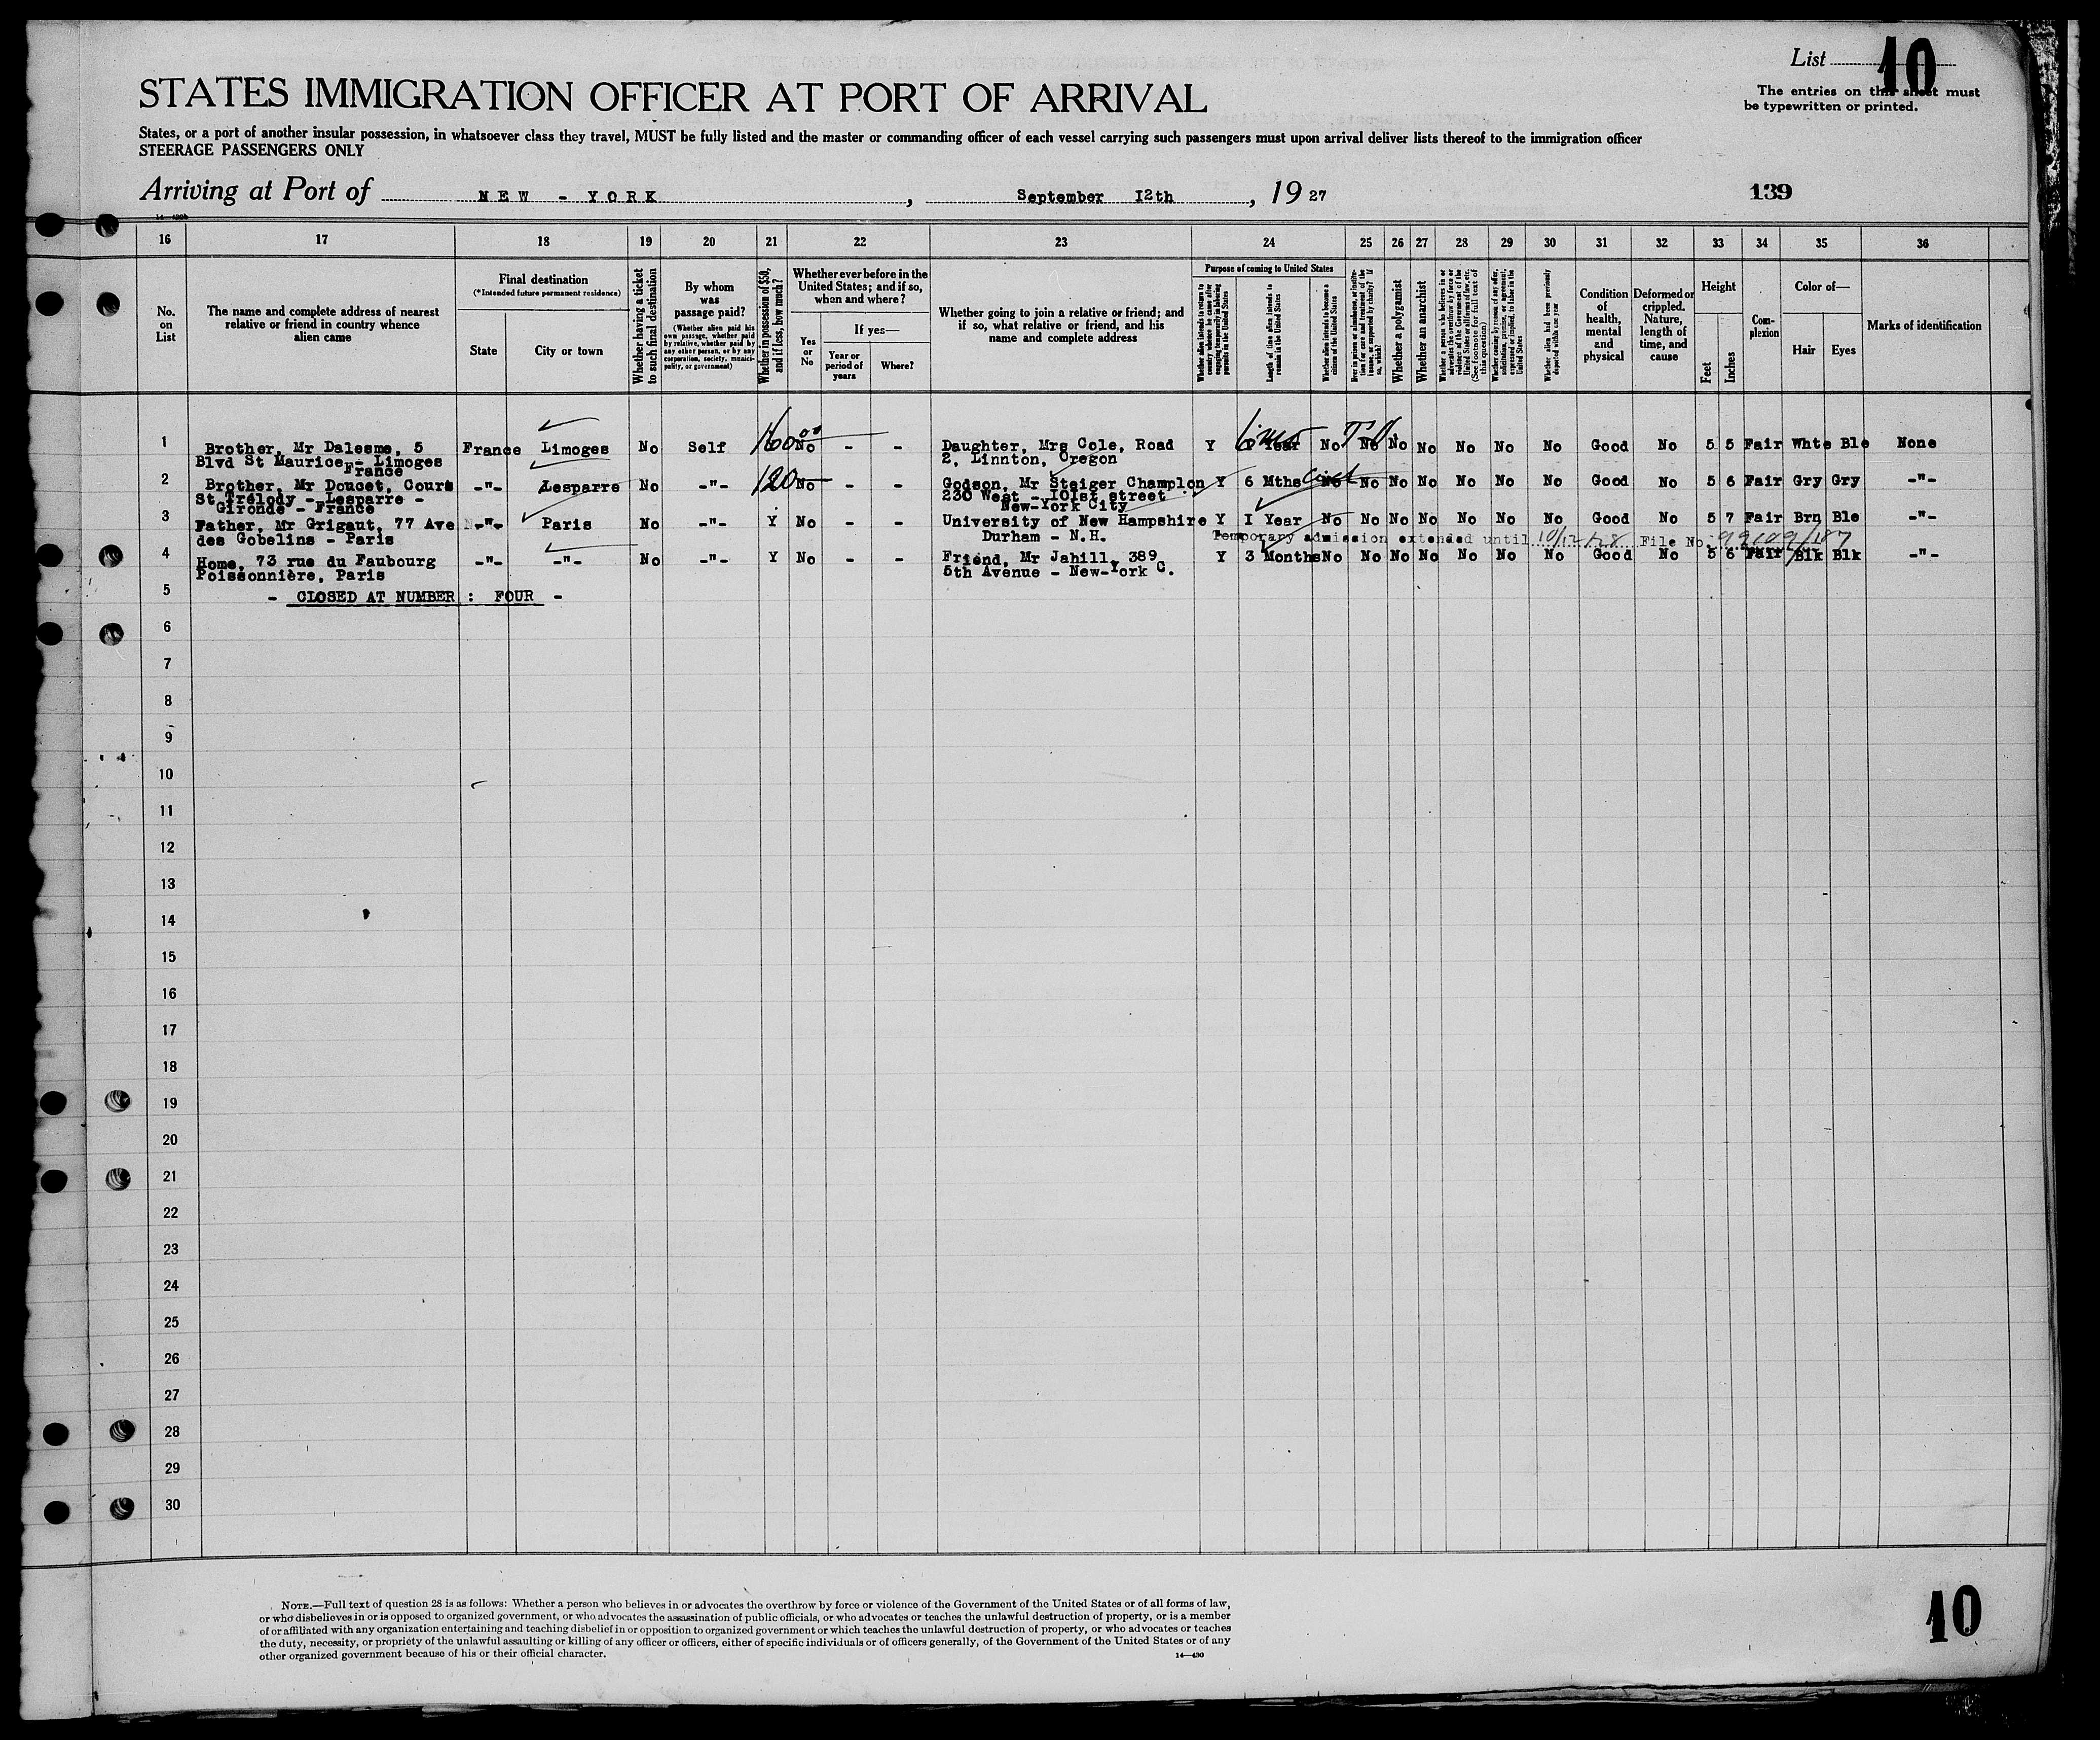 List 10
The entries on this sheet must
be typewritten or printed.
STATES IMMIGRATION OFFICER AT PORT OF ARRIVAL
States, or a port of another insular possession, in whatsoever class they travel, MUST be fully listed and the master or commanding officer of each vessel carrying such passengers must upon arrival deliver lists thereof to the immigration officer
STEERAGE PASSENGERS ONLY
Arriving at Port of NEW - YORK, September 12th, 19 27
139
16 17 18 19 20 21 22 23 24 25 26 27 28 29 30 31 32 33 34 35 36
No. on List
The name and complete address of nearest relative or friend in country whence alien came
Final destination
(*Intended future permanent residence)
State
City or town
Whether having a ticket to such final destination
By whom was passage paid?
(Whether alien paid his own passage, whether paid by relative, whether paid by any other person, or by any corporation, society, municipality, or government)
Whether in possession of $50, and if less, how much?
Whether ever before in the United States; and if so, when and where?
Yes or No
If yes—
Year or period of years
Where?
Whether going to join a relative or friend; and if so, what relative or friend, and his name and complete address
Purpose of coming to United States
Length of time alien intends to remain in the United States
Whether alien intends to become a citizen of the United States
Whether a polygamist
Whether an anarchist
Condition of health, mental and physical
Deformed or crippled. Nature, length of time, and cause
Height
Feet
Inches
Complexion
Color of—
Hair
Eyes
Marks of identification
1 Brother, Mr Dalesme, 5 France Limoges No Self 160 00 No - - Daughter, Mrs Cole, Road Y 6 mos Year No No No No No No No Good No 5 5 Fair Whte Ble None
Blvd St Maurice - Limoges 2, Linnton, Oregon
France
2 Brother, Mr Doucet, Cours -"- Lesparre No -"- 120 No - - Godson, Mr Steiger Champion Y 6 Mths No No No No No No No Good No 5 6 Fair Gry Gry -"-
St Trélody - Lesparre - 230 West - 101st street
Gironde - France New-York City
3 Father, Mr Grigaut, 77 Ave -"- Paris No -"- Y No - - University of New Hampshire Y I Year No No No No No No No Good No 5 7 Fair Brn Ble -"-
des Gobelins - Paris Durham - N.H. Temporary admission extended until 10/12/28 File No.
4 Home, 73 rue du Faubourg -"- -"- No -"- Y No - - Friend, Mr Jahill, 389 Y 3 Months No No No No No No No Good No 5 6 Fair Blk Blk -"-
Poissonnière, Paris 5th Avenue - New-York C.
5 - CLOSED AT NUMBER : FOUR -
6
7
8
9
10
11
12
13
14
15
16
17
18
19
20
21
22
23
24
25
26
27
28
29
30
NOTE.—Full text of question 28 is as follows: Whether a person who believes in or advocates the overthrow by force or violence of the Government of the United States or of all forms of law,
or who disbelieves in or is opposed to organized government, or who advocates the assassination of public officials, or who advocates or teaches the unlawful destruction of property, or is a member
of or affiliated with any organization entertaining and teaching disbelief in or opposition to organized government or which teaches the unlawful destruction of property, or who advocates or teaches
the duty, necessity, or propriety of the unlawful assaulting or killing of any officer or officers, either of specific individuals or of officers generally, of the Government of the United States or of any
other organized government because of his or their official character.
14—430
10